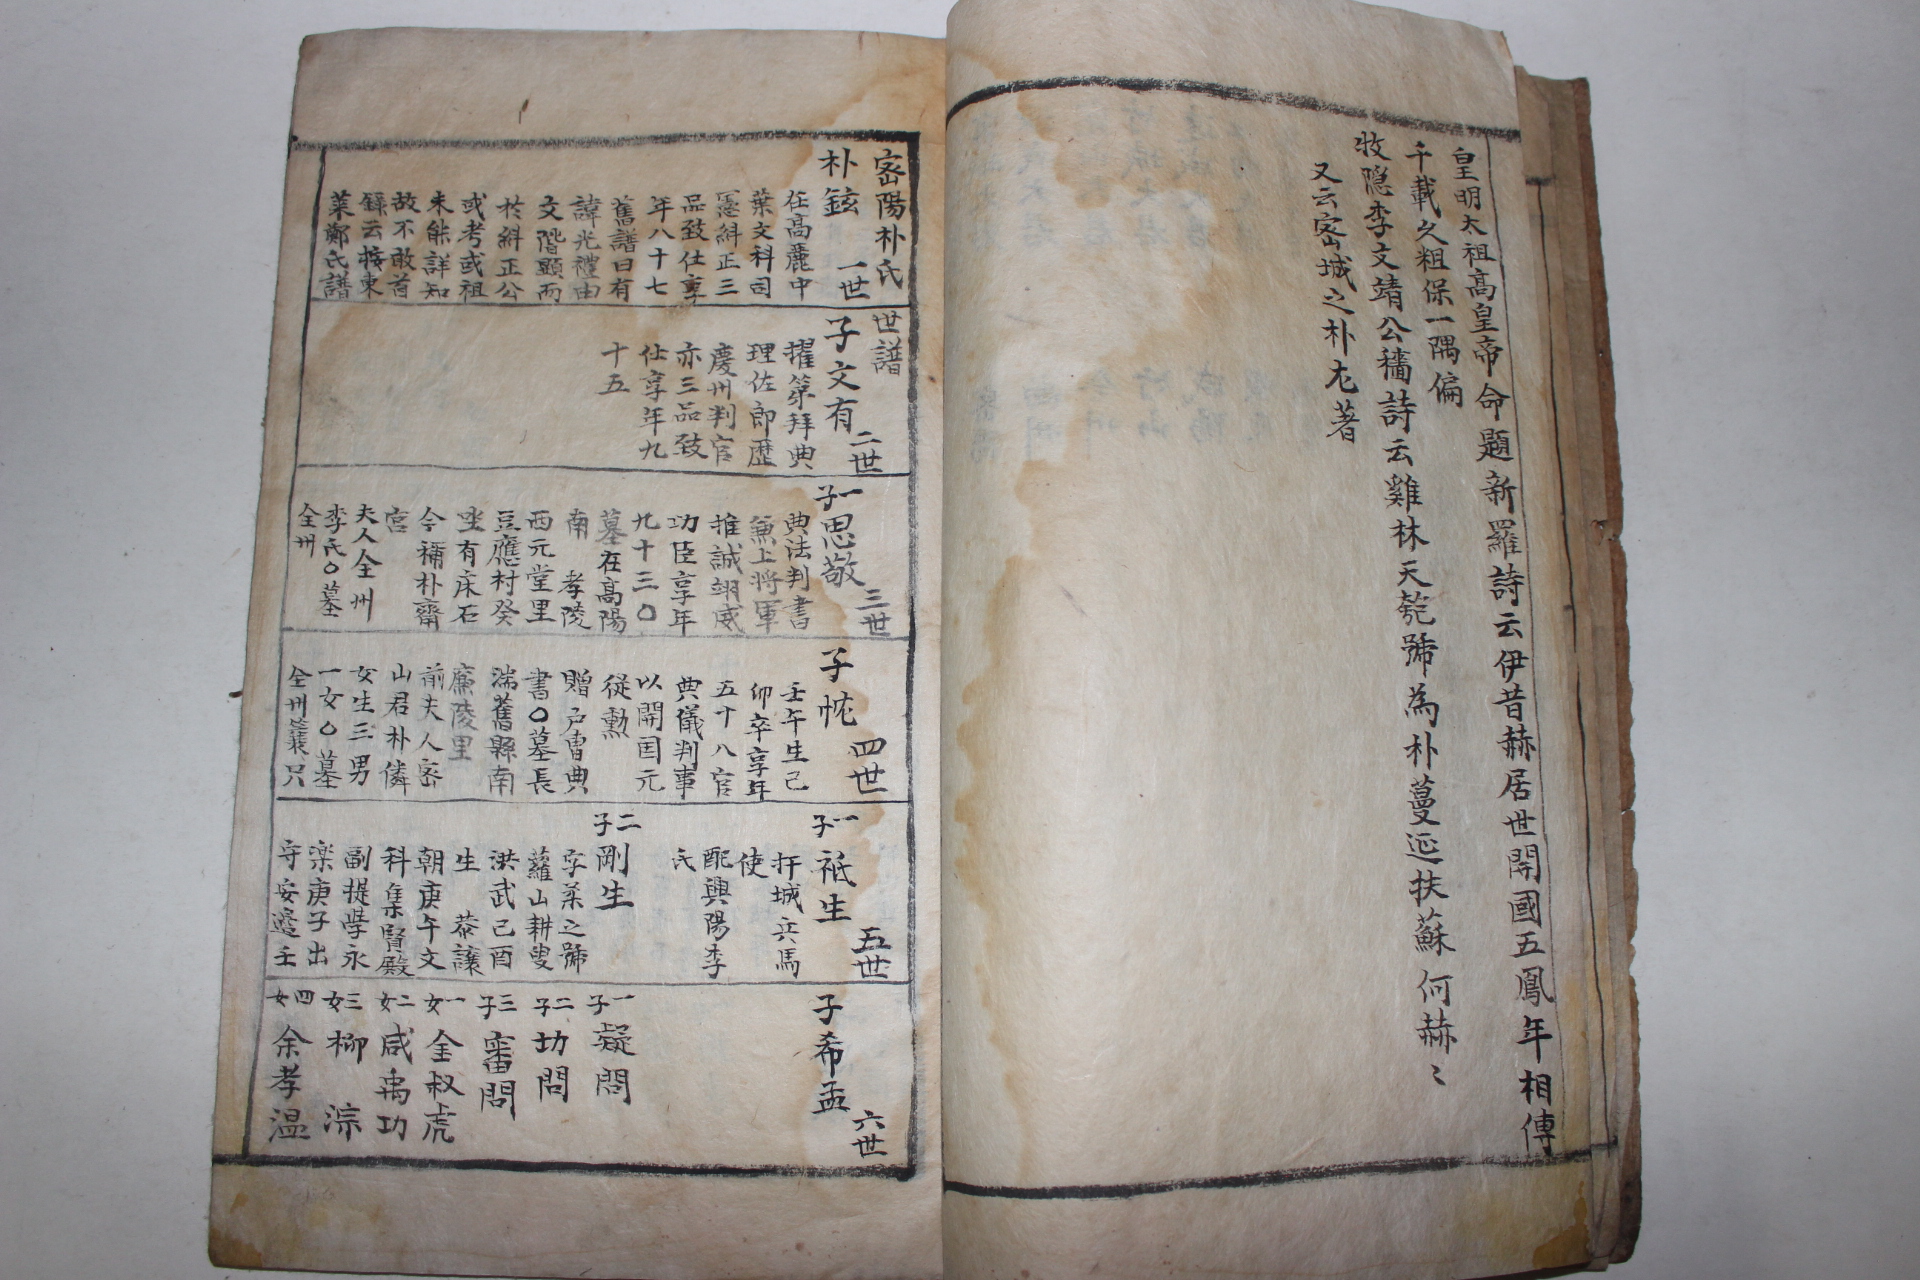 皇明太祖高皇帝命題新羅詩云伊昔赫居世開國五鳳年相傳
千載久粗保一隅偏
牧隐李文靖公穡詩云雞林天匏號為朴蔓延扶蘇何赫〻
又云密城之朴尤著
密陽朴氏
世譜
朴鉉
一世
在高麗中
葉文科司
憲糾正三
品致仕享
年八十七
舊譜曰有
諱光禮由
文階顯而
於糾正公
或考或祖
未能詳知
故不敢首
錄云按東
萊鄭氏譜
子文有
二世
擢第拜典
理佐郎歷
慶州判官
亦三品致
仕享年九
十五
一子思敬
三世
典法判書
兼上将軍
推誠翊威
功臣享年
九十三〇
墓在高陽
南 孝陵
西元堂里
豆應村癸
坐有床石
今補朴齋
宮
夫人全州
李氏〇墓
全州
子忱
四世
壬午生己
卯卒享年
五十八官
典儀判事
以開国元
従勲
贈戶曹典
書〇墓長
湍舊縣南
廉陵里
前夫人密
山君朴憐
女生三男
一女〇墓
全州簑只
一子祗生
五世
扞城兵馬
使
配興陽李
氏
二子剛生
字柔之號
蘿山耕叟
洪武己酉
生 恭讓
朝庚午文
科集賢殿
副提學永
楽庚子出
守安邊壬
子希孟
六世
一子凝問
二子切問
三子審問
一女金叔虎
二女咸禹功
三女柳淙
四女余孝温